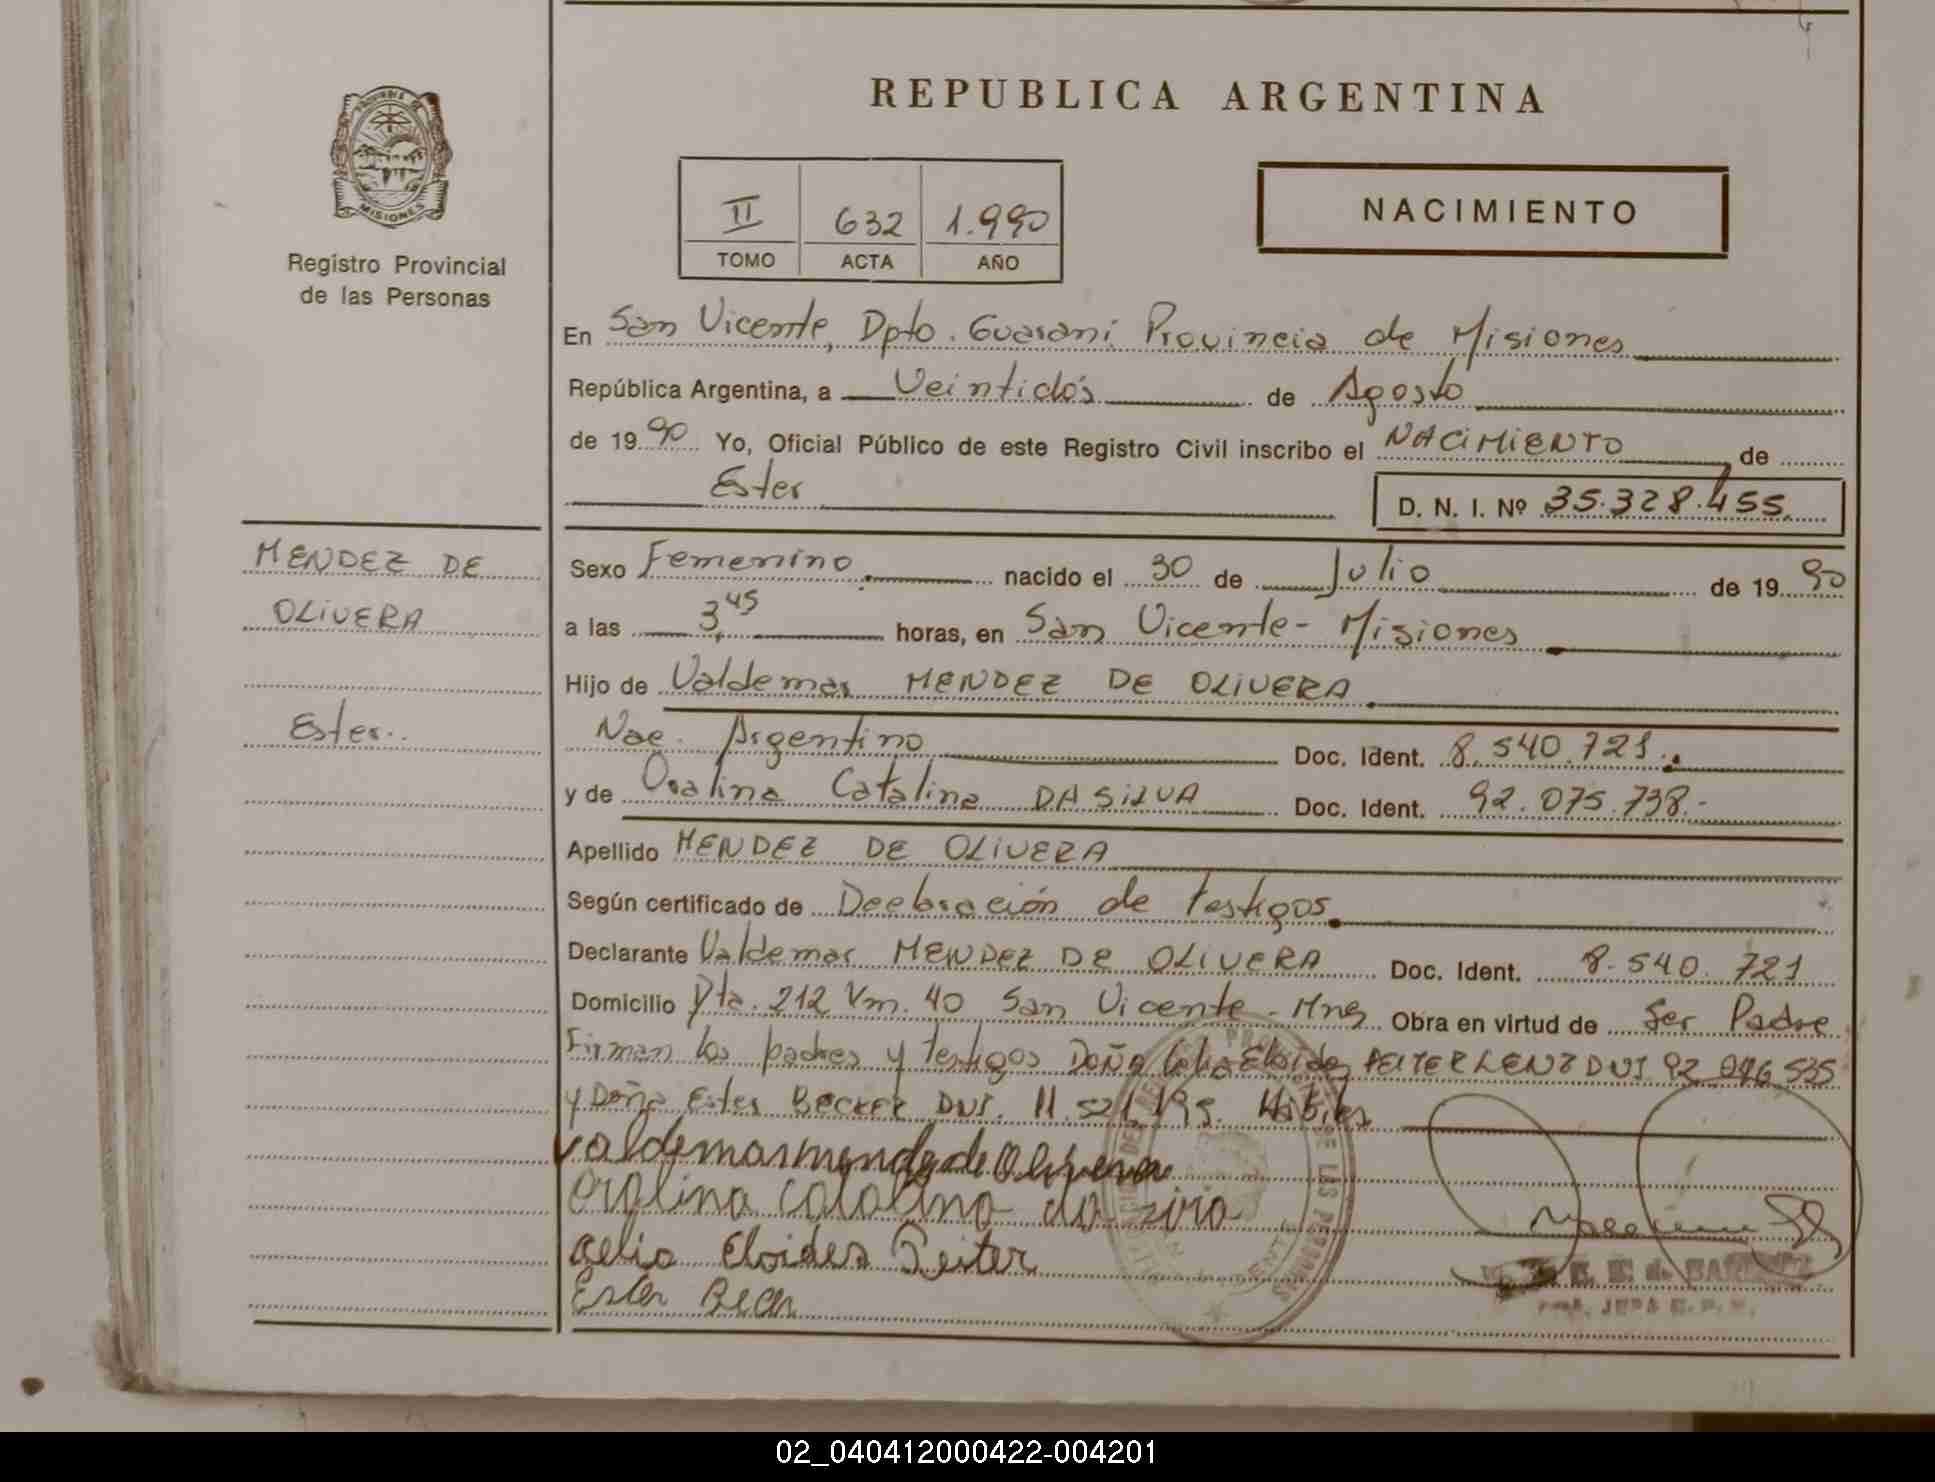 REPUBLICA ARGENTINA
PROVINCIA DE
MISIONES
Registro Provincial
de las Personas
II 632 1.990
TOMO ACTA AÑO
NACIMIENTO
En San Vicente, Dpto. Guaraní Provincia de Misiones
República Argentina, a Veintidós de Agosto
de 1990 Yo, Oficial Público de este Registro Civil inscribo el NACIMIENTO de
Ester
D. N. I. Nº 35.328.455
MENDEZ DE
OLIVERA
Ester..
Sexo Femenino nacido el 30 de Julio de 1990
a las 3,45 horas, en San Vicente - Misiones
Hijo de Valdemar MENDEZ DE OLIVERA
Nac. Argentino Doc. Ident. 8.540.721.
y de Catalina DA SILVA Doc. Ident. 92.075.738.-
Apellido MENDEZ DE OLIVERA
Según certificado de Declaración de testigos
Declarante Valdemar MENDEZ DE OLIVERA Doc. Ident. 8.540.721
Domicilio 212 Km. 40 San Vicente - Mnes Obra en virtud de Ser Padre
Firman los padres y testigos Doña Celia Eloides REITER LENZ DNI 92
y Doña Ester BECKER DNI. 11.521. Hábiles
valdemar mendez de Olivera
catalina da
celia Eloides Reiter
Ester
JEFA R. P. P.
02_040412000422-004201